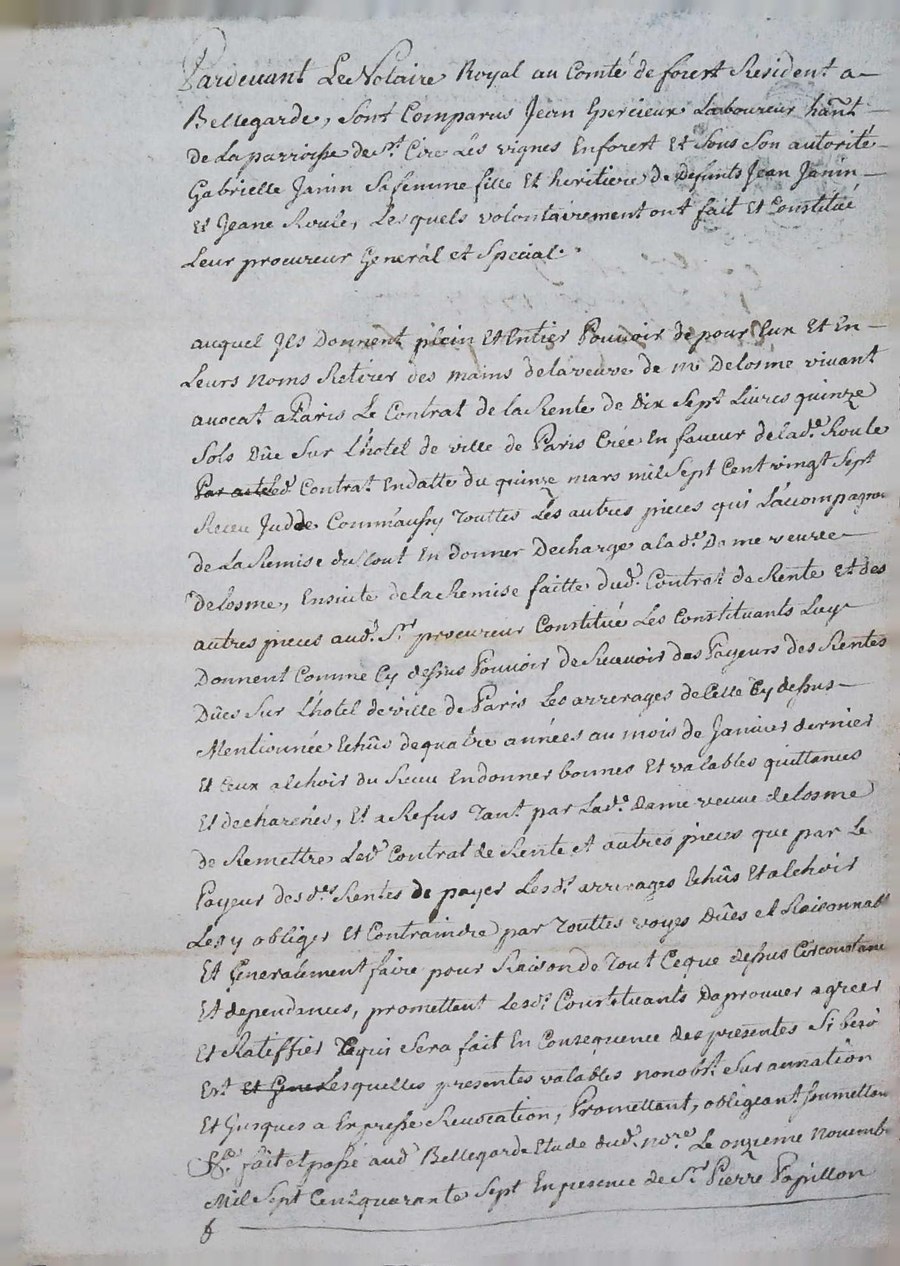 Pardevant Le Notaire Royal au Comté de forest Resident a
Bellegarde, sont Comparus Jean Epercieux Laboureur hañt
de La parroisse de st. Cire Les vignes En forest Et sous son autorité
Gabrielle Janin sa femme fille Et heritiere de Defunts Jean Janin
Et Jeane Roule, Lesquels volontairement ont fait Et Constitué
Leur procureur General et Special
auquel Jls Donnent plein Et Entier Pouvoir de pour Eux Et En
Leurs noms Retirer des mains de la veuve de mr Delosme vivant
avocat a Paris Le Contrat de la Rente de Dix Sept Livres quinze
Sols Dûe Sur L'hotel de ville de Paris Crée En faveur de lade. Roule
Par acte Led. Contrat En datte du quinze mars mil Sept Cent vingt Sept
Receu Touttes Les autres pieces qui L'accompagnent
de La Remise du tout En donner Decharge a lade. Dame veuve
Delosme, Ensuite de la Remise faitte dud. Contrat de Rente Et des
autres pieces aud. Sr. procureur Constitué Les Constituants Luy
Donnent Comme Cy dessus Pouvoir de Recevoir des Payeurs des Rentes
Dûes Sur L'hotel de ville de Paris Les arrerages de Celle Cy dessus
Mentionnée Echûs de quatre années au mois de Janvier dernier
Et Ceux a Echoir du Receu En donner bonnes Et valables quittances
Et decharges, Et a Refus Tant par Lade. dame veuve delosme
de Remettre Led. Contrat de Rente Et autres pieces que par Le
Payeur desdes. Rentes de payer Lesds. arrerages Echûs Et a Echoir
Les y obliger Et Contraindre par Touttes voyes Dûes et Raisonnabl
Et Generalement faire pour Raison de Tout Ce que dessus Circonstance
Et dependances, promettent Lesds. Constituants Daprouver agreer
Et Rateffier Ce qui Sera fait En Consequence des presentes Si bero
Ert. Et Gene Lesquelles presentes valables nonobst. Surannation
Et Jusques a Expresse Revocation, Promettant, obligeant soumettan
&c. fait et passé aud. Bellegarde Etude dud. nore. Le onzieme novemb
Mil Sept Cent quarante Sept En presence de Sr. Pierre Papillon